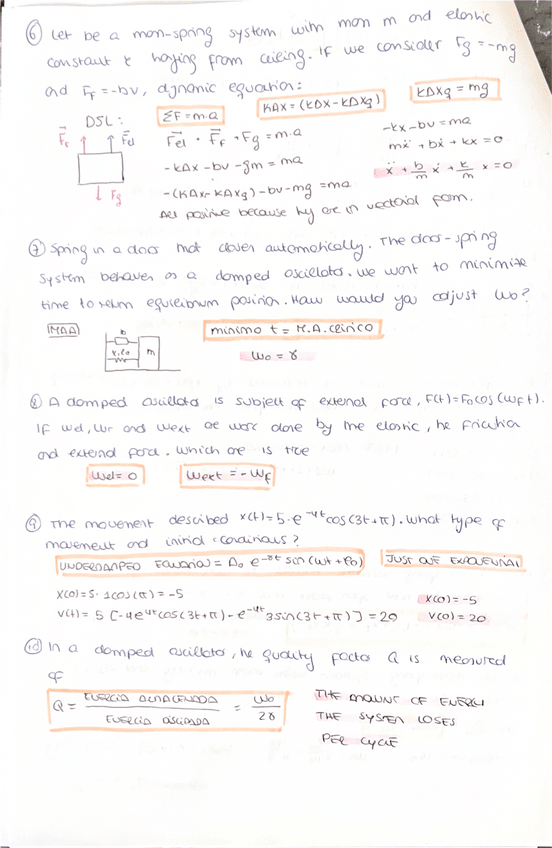 ⑥ Let be a mon-spring system with mon m and elastic
constant k haying from ceiling. If we consider Fg = -mg
and Ff = -bv, dynamic equation:
DSL:
ΣF = m·a
KΔX = (KΔX - KΔXg)
KΔXg = mg
Ff
Fel
Fg
Fel + Ff + Fg = m·a
-KΔX - bv - gm = ma
-(KΔX - KΔXg) - bv - mg = ma
All positive because hy are in vectorial form.
-kx - bv = ma
mẍ + bẋ + kx = 0
ẍ + b/m ẋ + k/m x = 0
⑦ Spring in a door that closes automatically. The door-spring
system behaves as a damped oscillator. We want to minimize
time to return equilibrium position. How would you adjust ω0?
MAA
b
k, l0
m
minimo t = M.A. critico
ω0 = γ
⑧ A damped oscillator is subject of external force, F(t) = F0 cos(ωf t).
If Wel, Wf and Wext are work done by the elastic, he friction
and external force. Which are is true
Wel = 0
Wext = -Wf
⑨ The movement described x(t) = 5·e^-4t cos(3t+π). What type of
movement and initial conditions?
UNDERDAMPED Equation = A0 e^-γt sin(ωt + φ0)
JUST ONE EXPONENTIAL
X(0) = 5·1cos(π) = -5
V(t) = 5[-4e^4t cos(3t+π) - e^-4t 3sin(3t+π)] = 20
X(0) = -5
V(0) = 20
⑩ In a damped oscillator, he quality factor Q is measured
of
Q = ENERGIA ALMACENADA / ENERGIA DISIPADA = ω0 / 2γ
THE AMOUNT OF ENERGY
THE SYSTEM LOSES
PER CYCLE